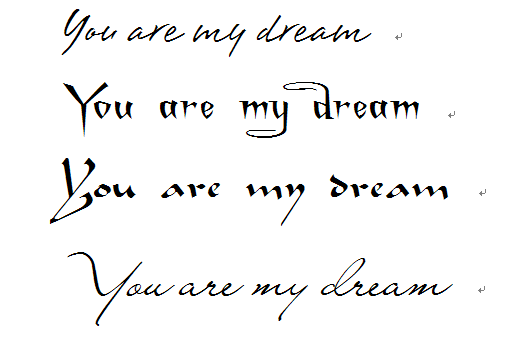 You are my dream
You are my dream
You are my dream
You are my dream